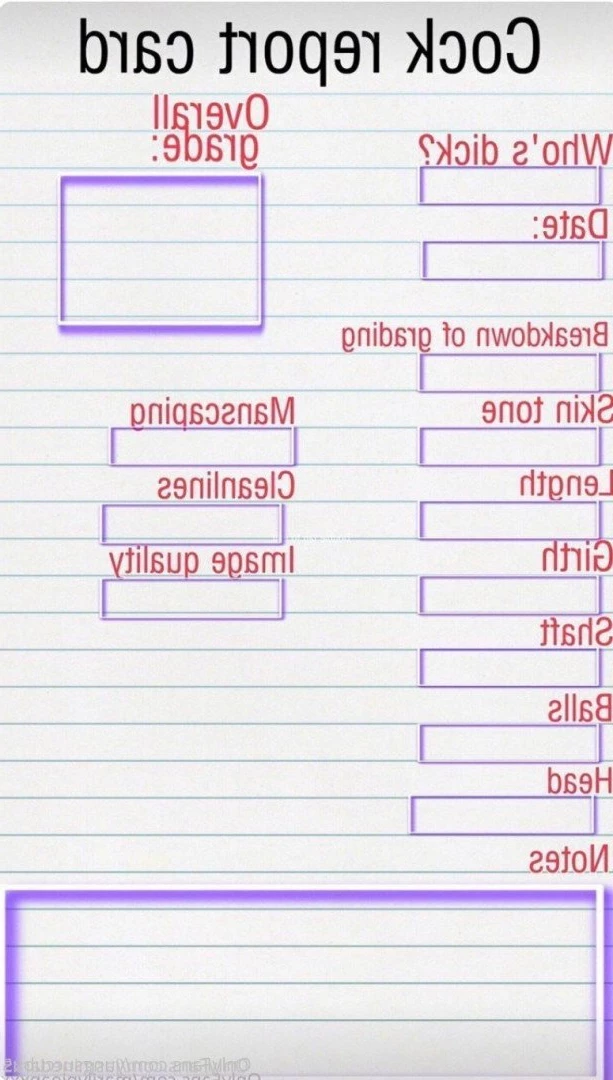 Cock report card
Overall
grade:
Who's dick?
Date:
Breakdown of grading
Skin tone
Manscaping
Length
Cleanlines
Girth
Image quality
Shaft
Balls
Head
Notes